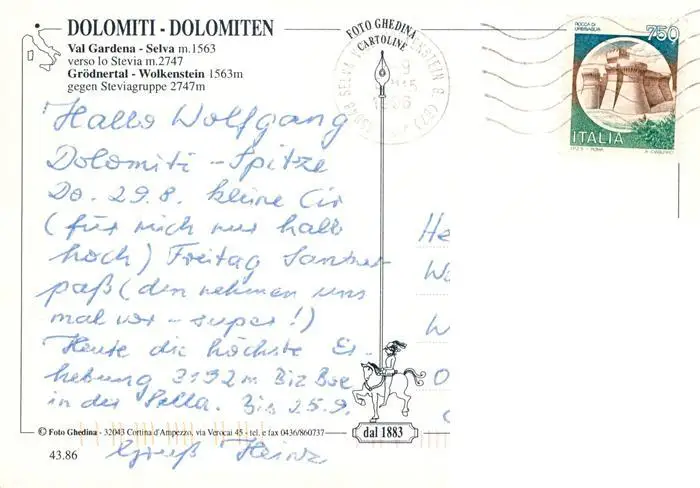 DOLOMITI - DOLOMITEN
Val Gardena - Selva m.1563
verso lo Stevia m.2747
Grödnertal - Wolkenstein 1563m
gegen Steviagruppe 2747m
FOTO GHEDINA
CARTOLINE
ROCCA DI
URBISAGLIA
750
ITALIA
I.P.Z.S. - ROMA
Hallo Wolfgang
Dolomiti - Spitze
Do. 29.8. kleine Cir
(für mich nur halb
hoch) Freitag
paß (den nehmen uns
mal vor - super!)
Heute die höchste Er-
hebung 3152 m Piz Boe
in der Sella. Bis 25.9.
Gruß Heinz
He
W
O
© Foto Ghedina - 32043 Cortina d'Ampezzo, via Verocai 45 - tel. e fax 0436/860737
dal 1883
43.86